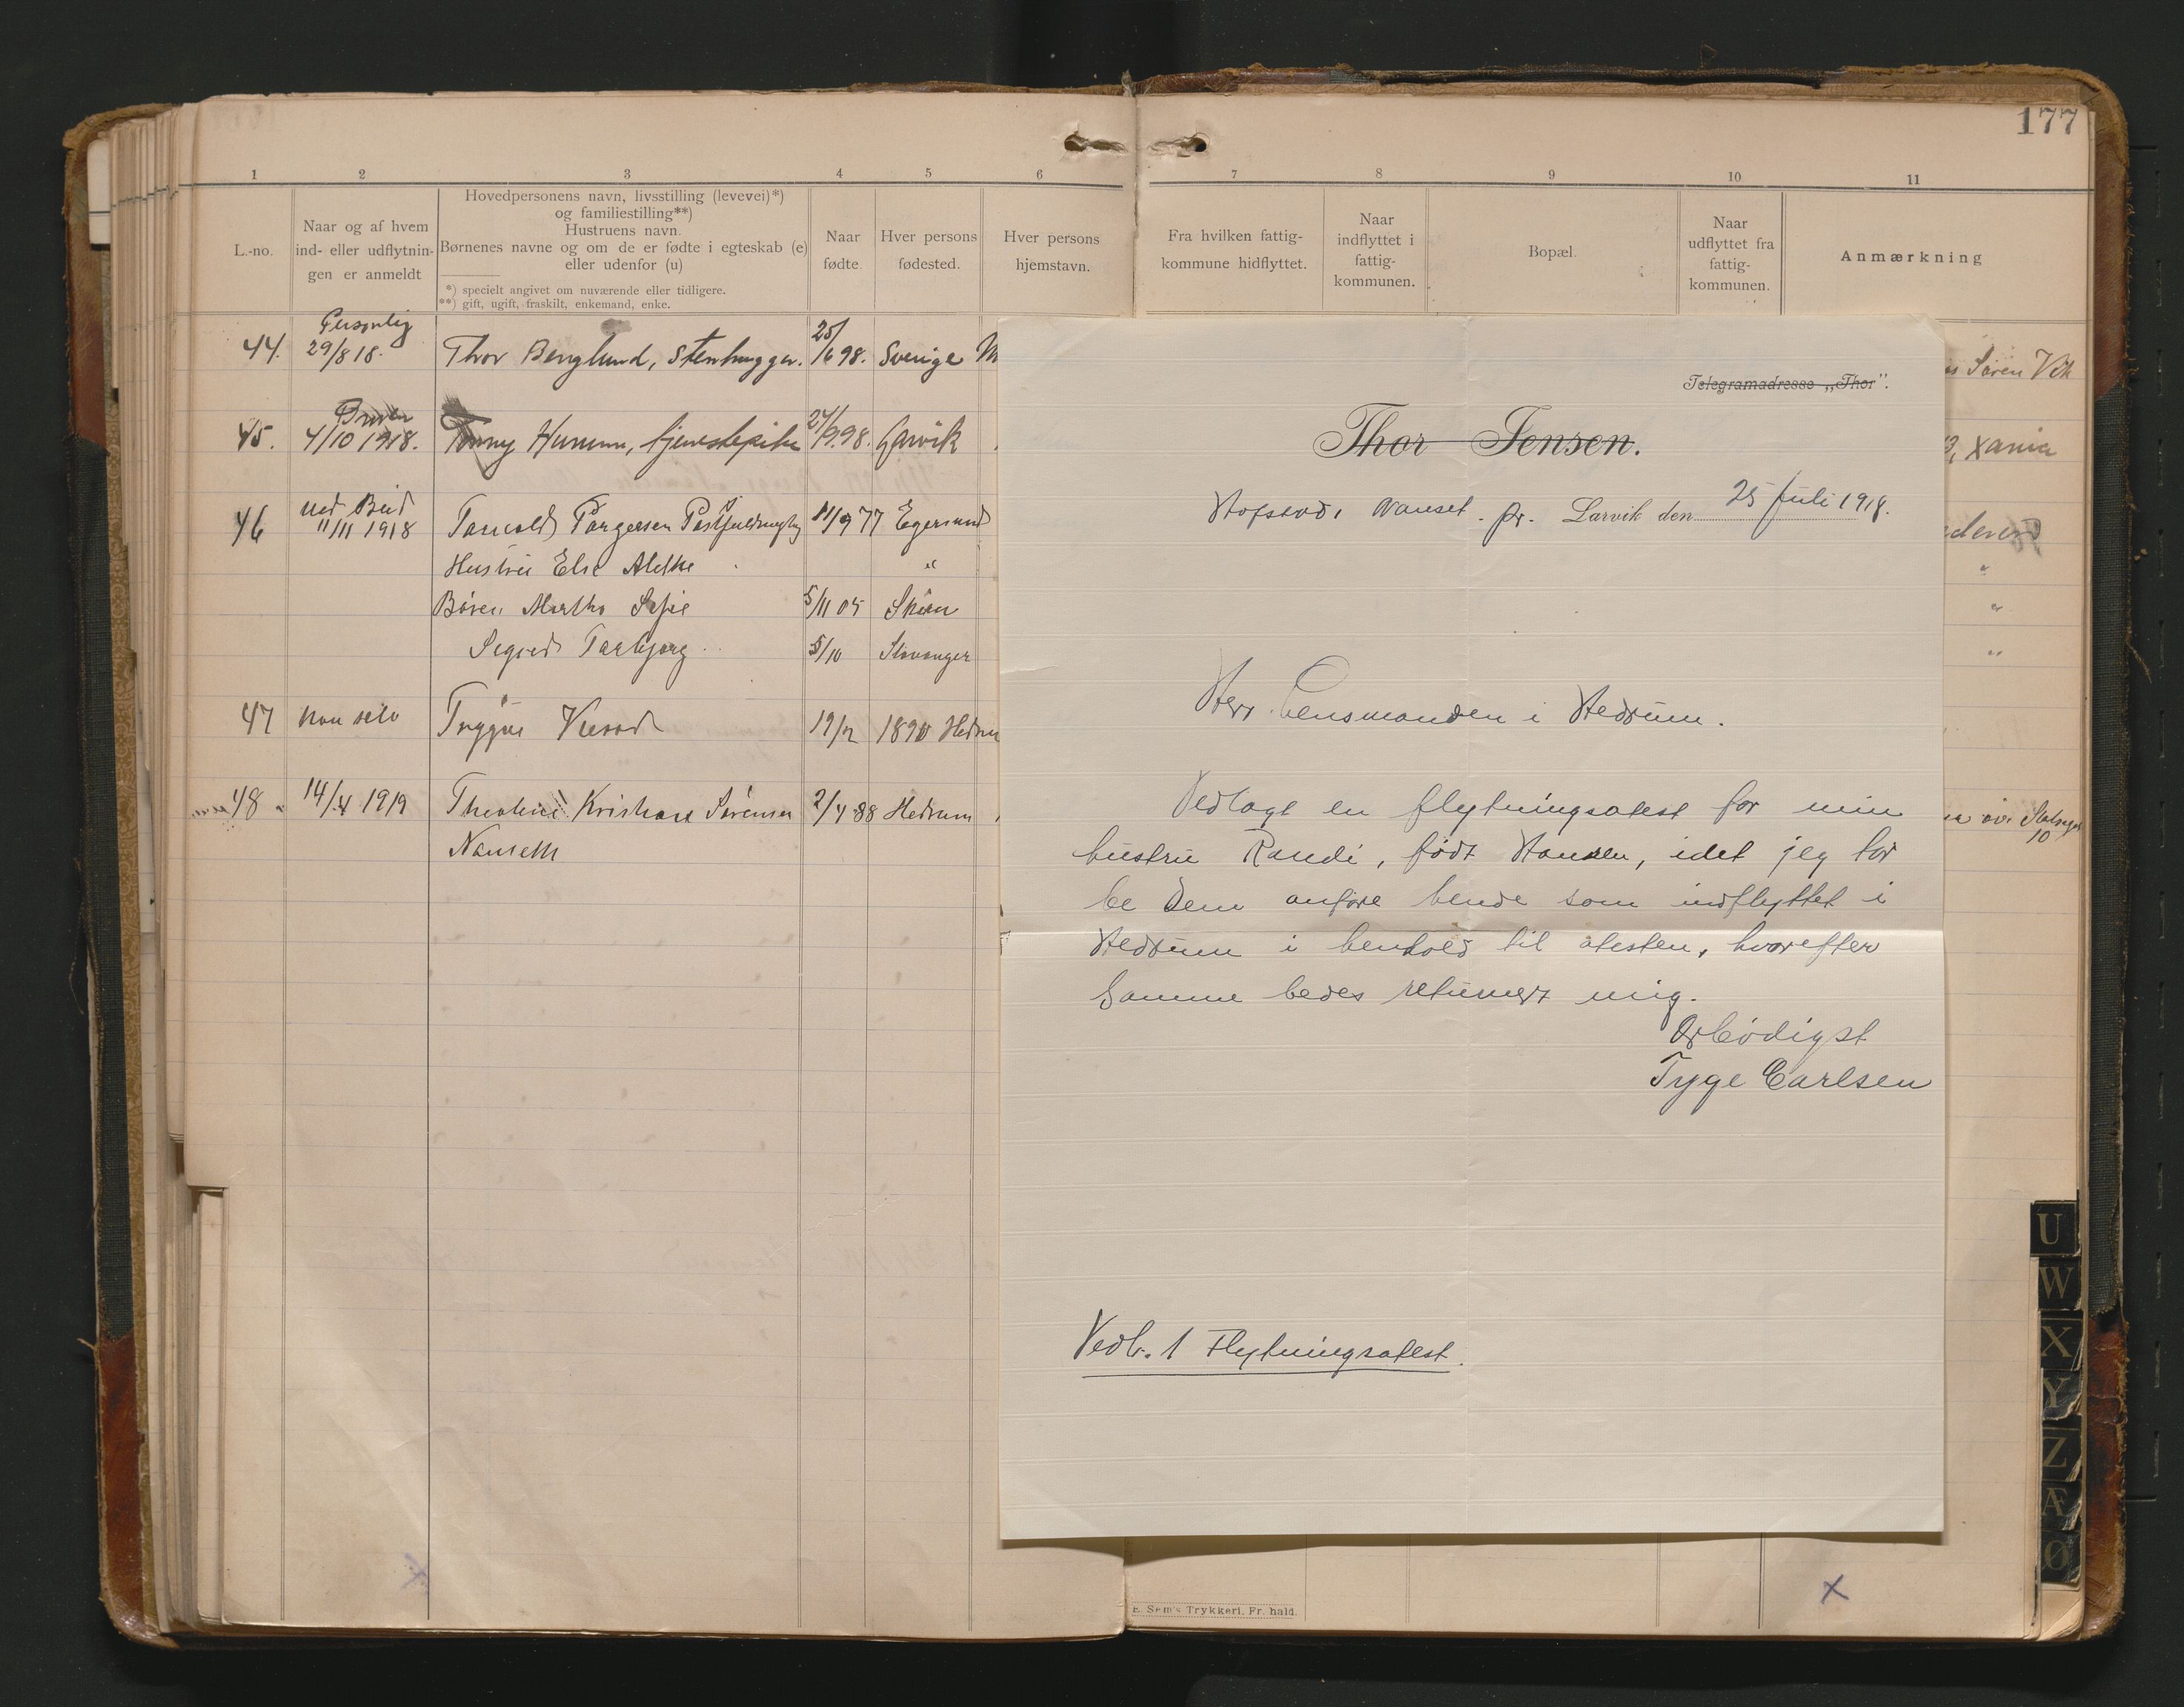 177
1 2 3 4 5 6 7 8 9 10 11
L.-no.
Naar og af hvem
ind- eller udflytnin-
gen er anmeldt
Hovedpersonens navn, livsstilling (levevei)*)
og familiestilling**)
Hustruens navn.
Børnenes navne og om de er fødte i egteskab (e)
eller udenfor (u)
*) specielt angivet om nuværende eller tidligere.
**) gift, ugift, fraskilt, enkemand, enke.
Naar
fødte.
Hver persons
fødested.
Hver persons
hjemstavn.
Fra hvilken fattig-
kommune hidflyttet.
Naar
indflyttet i
fattig-
kommunen.
Bopæl.
Naar
udflyttet fra
fattig-
kommunen.
Anmærkning
Personlig
44. 29/8 18. Thor Berglund, Stenhugger. 25/6 98. Sverige
45. 4/10 1918. Hurum, tjenestepike 24/9.98. Larvik
46 11/11 1918 Torgersen 11/9 77 Egersund
Hustru Else
Børn Martha Sofie 5/11 05 Skien
Sigred Torbjorg 5/10 Stavanger
47 Han selv Trygve 19/2 1890 Hedrum
48 14/4 1919 Kristiane Sørensen 2/4 88 Hedrum
Nanseth
Søren Vik
Xania
10
Telegramadresse „Thor".
Thor Jensen.
Nanset. pr. Larvik den 25 Juli 1918.
Herr Lensmanden i Hedrum.
Vedlagt en flytningsatest for min
hustru Randi, født Hansen, idet jeg tør
be Dem anføre hende som indflyttet i
Hedrum i henhold til atesten, hvorefter
samme bedes returnert mig.
Ærbødigst
Tyge Carlsen
Vedl. 1 Flytningsatest.
E. Sem's Trykkeri, Fr. hald.
U
W
X
Y
Z
Æ
Ø